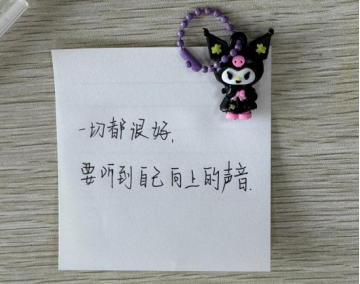 一切都很好,
要听到自己向上的声音.